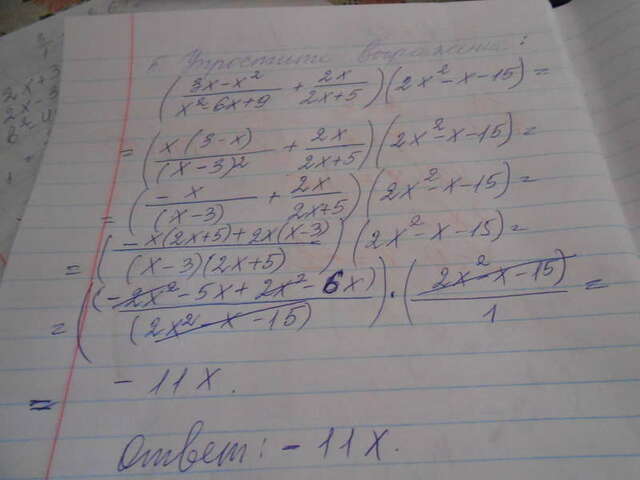 Упростите выражение:
((3x-x²)/(x²-6x+9) + 2x/(2x+5))(2x²-x-15) =
= (x(3-x)/(x-3)² + 2x/(2x+5))(2x²-x-15) =
= (-x/(x-3) + 2x/(2x+5))(2x²-x-15) =
= ((-x(2x+5)+2x(x-3))/((x-3)(2x+5)))(2x²-x-15) =
= ((-2x²-5x+2x²-6x)/(2x²-x-15)) · ((2x²-x-15)/1) =
= -11x.
Ответ: -11x.